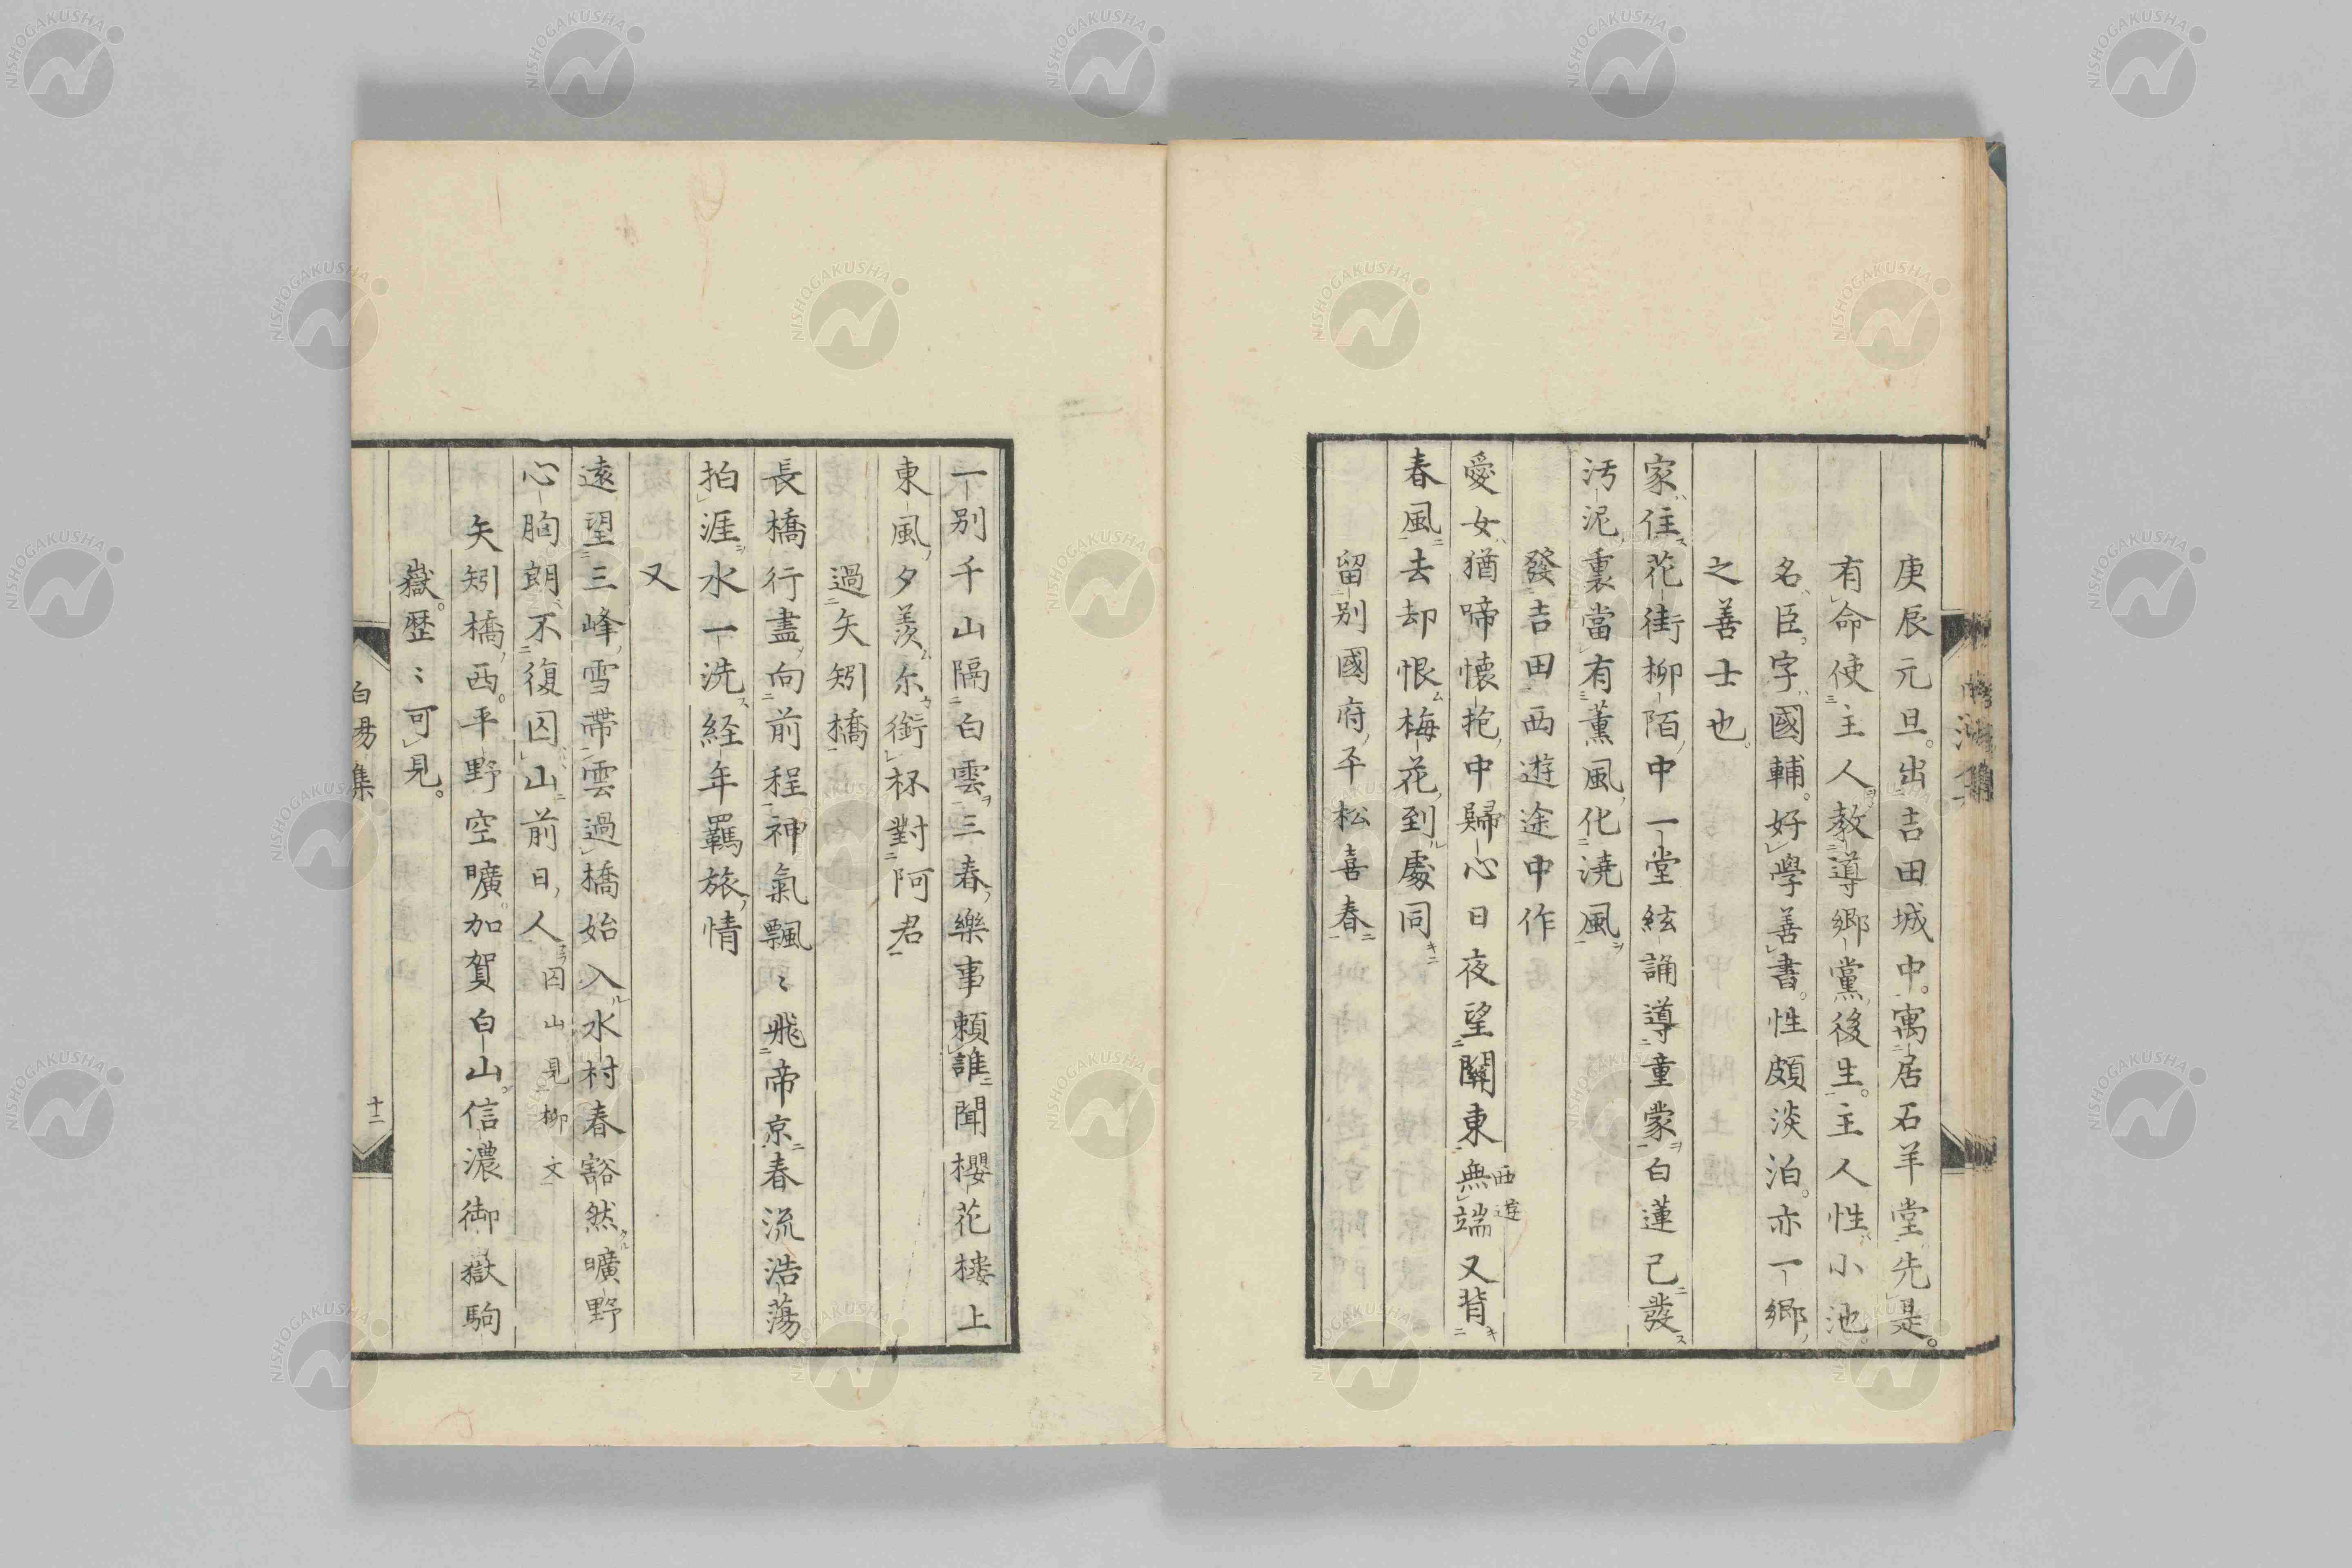 庚辰元旦。出吉田城中。寓居石羊堂先是。
有命使主人教導郷黨後生。主人性小池。
名臣。字國輔。好學善書。性頗淡泊。亦一郷
之善士也。
家住花街柳陌中一堂絃誦導童蒙白蓮已發
汚泥裏當有薰風化澆風
發吉田西遊途中作
愛女猶啼懐抱中歸心日夜望關東無端又背
西遊
春風去却恨梅花到處同
留別國府平松喜春
一別千山隔白雲三春樂事頼誰聞櫻花樓上
東風夕羨尓銜杯對阿君
過矢矧橋
長橋行盡向前程神氣飄〻飛帝京春流浩蕩
拍涯水一洗経年羈旅情
又
遠望三峰雪帶雲過橋始入水村春豁然曠野
心胸朗不復囚山前日人囚山見柳文
矢矧橋西。平野空曠。加賀白山。信濃御嶽駒
嶽。歴〻可見。
白易集
十二